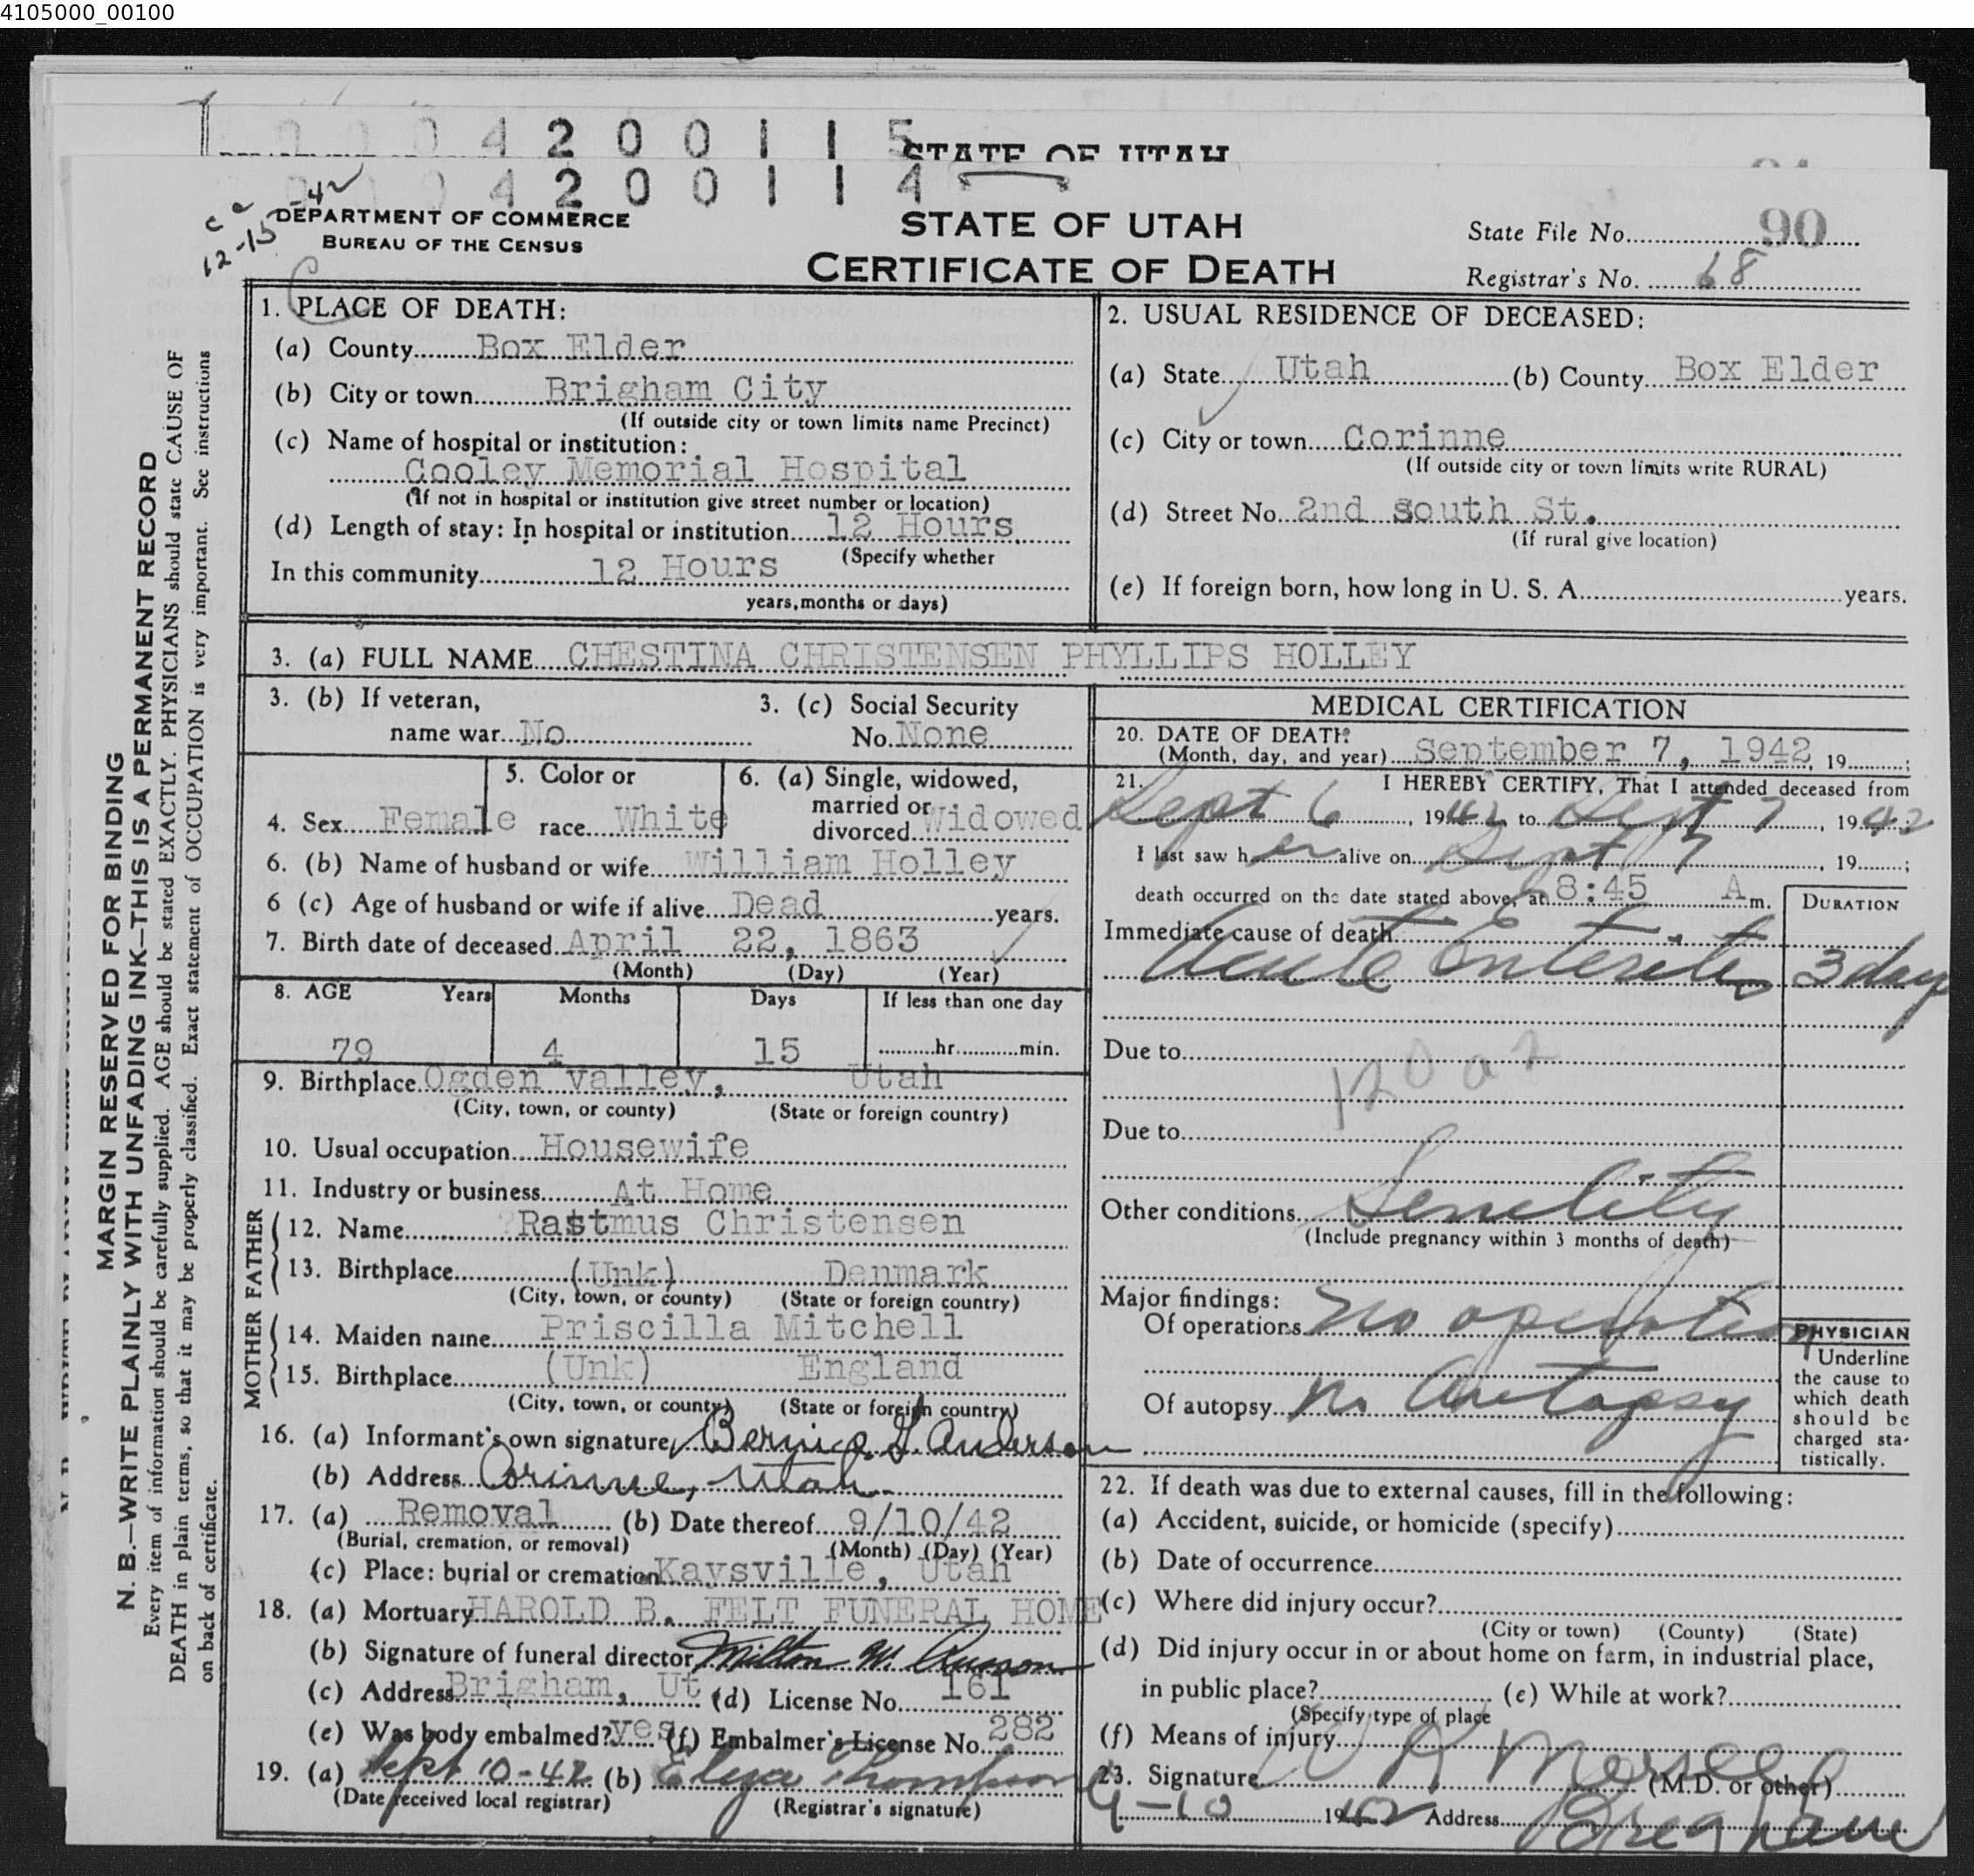 4105000_00100
4 2 0 0 1 1 5
STATE OF UTAH
4 2 0 0 1 1 4
12-15-42
DEPARTMENT OF COMMERCE
BUREAU OF THE CENSUS
STATE OF UTAH
CERTIFICATE OF DEATH
State File No. 90
Registrar's No. 68
MARGIN RESERVED FOR BINDING
N. B.—WRITE PLAINLY WITH UNFADING INK—THIS IS A PERMANENT RECORD
Every item of information should be carefully supplied. AGE should be stated EXACTLY. PHYSICIANS should state CAUSE OF
DEATH in plain terms, so that it may be properly classified. Exact statement of OCCUPATION is very important. See instructions
on back of certificate.
1. PLACE OF DEATH:
(a) County Box Elder
(b) City or town Brigham City
(If outside city or town limits name Precinct)
(c) Name of hospital or institution:
Cooley Memorial Hospital
(If not in hospital or institution give street number or location)
(d) Length of stay: In hospital or institution 12 Hours
(Specify whether
In this community 12 Hours
years, months or days)
2. USUAL RESIDENCE OF DECEASED:
(a) State Utah (b) County Box Elder
(c) City or town Corinne
(If outside city or town limits write RURAL)
(d) Street No. 2nd south St.
(If rural give location)
(e) If foreign born, how long in U. S. A. years.
3. (a) FULL NAME CHESTINA CHRISTENSEN PHYLLIPS HOLLEY
3. (b) If veteran,
name war No
3. (c) Social Security
No. None
4. Sex Female
5. Color or
race White
6. (a) Single, widowed,
married or
divorced Widowed
6. (b) Name of husband or wife William Holley
6 (c) Age of husband or wife if alive Dead years.
7. Birth date of deceased April 22, 1863
(Month) (Day) (Year)
8. AGE Years Months Days If less than one day
79 4 15 hr. min.
9. Birthplace Ogden Valley, Utah
(City, town, or county) (State or foreign country)
10. Usual occupation Housewife
11. Industry or business At Home
FATHER
12. Name Rastmus Christensen
13. Birthplace (Unk) Denmark
(City, town, or county) (State or foreign country)
MOTHER
14. Maiden name Priscilla Mitchell
15. Birthplace (Unk) England
(City, town, or county) (State or foreign country)
16. (a) Informant's own signature Bernice G Anderson
(b) Address Corinne, Utah
17. (a) Removal (b) Date thereof 9/10/42
(Burial, cremation, or removal) (Month) (Day) (Year)
(c) Place: burial or cremation Kaysville, Utah
18. (a) Mortuary HAROLD B. FELT FUNERAL HOME
(b) Signature of funeral director Milton W.
(c) Address Brigham, Ut (d) License No. 161
(e) Was body embalmed? yes (f) Embalmer's License No. 282
19. (a) Sept 10-42 (b) Eliza Thompson
(Date received local registrar) (Registrar's signature)
MEDICAL CERTIFICATION
20. DATE OF DEATH:
(Month, day, and year) September 7, 1942, 19 ;
21. I HEREBY CERTIFY, That I attended deceased from
Sept 6, 1942 to Sept 7, 1942
I last saw her alive on Sept 7, 19 ;
death occurred on the date stated above, at 8:45 A m.
DURATION
Immediate cause of death
Acute Enteritis 3 day
Due to
120 a2
Due to
Other conditions Senility
(Include pregnancy within 3 months of death)
Major findings:
Of operations no operation
Of autopsy no Autopsy
PHYSICIAN
Underline
the cause to
which death
should be
charged sta-
tistically.
22. If death was due to external causes, fill in the following:
(a) Accident, suicide, or homicide (specify)
(b) Date of occurrence
(c) Where did injury occur?
(City or town) (County) (State)
(d) Did injury occur in or about home on farm, in industrial place,
in public place? (e) While at work?
(Specify type of place
(f) Means of injury
23. Signature W R (M.D. or other)
9-10 1942 Address Brigham